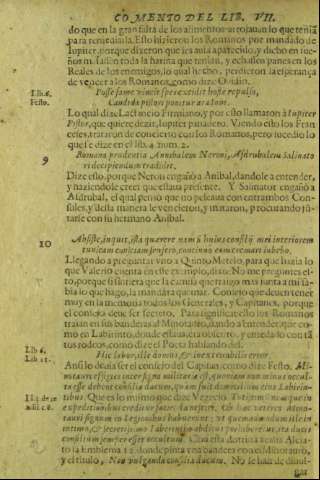 COMENTO DEL LIB. VII.
do que en la gran falta de los alimentos arrojauan lo que tenian
para remediarla. Esto hizieron los Romanos por mandado de
Iupiter, porque dizeron que les auia aparecido, y dicho en sue-
ños
toda la harina que tenian, y echassen panes en los
Reales de los enemigos, lo qual hecho, perdieron la esperança
de vencer a los Romanos, como dize Ouidio.
Lib. 6.
Festo.
Posse fame vinci spes excidit hoste repulso,
Candida pistori ponitur ara Ioui.
Lo qual dize Lactancio Firmiano, y por esto llamaron a Iupiter
Pistor, que quiere dezir, Iupiter panadero. Viendo esto los Fran
ceses, trataron de concierto con los Romanos, pero sucedio lo
que se dize en el lib. 4. num. 2.
9
Romana prudentia Annibalem Neroni, Asdrubalem Salinato
ri decipiendum tradidit.
Dize esto, porque Neron engañó a Anibal, dandole a entender,
y haziendole creer que estaua presente. Y Salinator engañó a
Asdrubal, el qual penso que no peleaua con entrambos Con-
sules, y desta manera le vencieron, y mataron, procurando jū-
tarse con su hermano Anibal.
10
Absiste, inquit, ista quærere nam si huius consilij mei interiorem
tunicam
Llegando a preguntar vno a Quinto Metelo, para que hazia lo
que Valerio cuenta en este exemplo, dixo: No me pregunteis es-
to, porque si supiera que la camisa que traigo mas junta a mi sa-
bia lo que hago, la mandara quemar. Consejo que deuen tener
muy en la memoria todos los Generales, y Capitanes, porque
el consejo deue ser secreto. Para significar esto los Romanos
traian en sus banderas al Minotauro, dando a entender, que co-
mo en Labirinto, donde estaua, era
tos rodeos, como dize el Poeta hablando del.
Lib. 6.
Hic labor, ille domus, & inextricabilis error.
Ansi lo deuia ser el consejo del Capitan, como dize Festo. Mi-
notauri effigies inter signa militaria est, quod non minus occul-
ta esse debent consilia ducum, quàm fuit domicilium eius Labirin-
thus. Que es lo mismo que dize Vegecio.
in
expeditionibus
tauri signum in Legionibus habuerunt, vt quemadmodum ille in
intimo, & secretissimo Labyrintho abditus perhibetur, ita ducis
consilium semper esset occultum. Con esta dotrina realza Alcia-
to la emblema 12. donde pinta vna bandera con el Minotauro,
y el titulo, Non vulganda consilia ducum. No se han de diuul-
gar